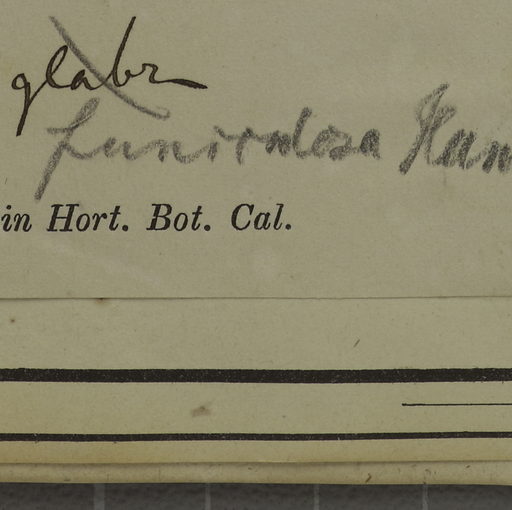 glabr
funiculosa Kun
in Hort. Bot. Cal.